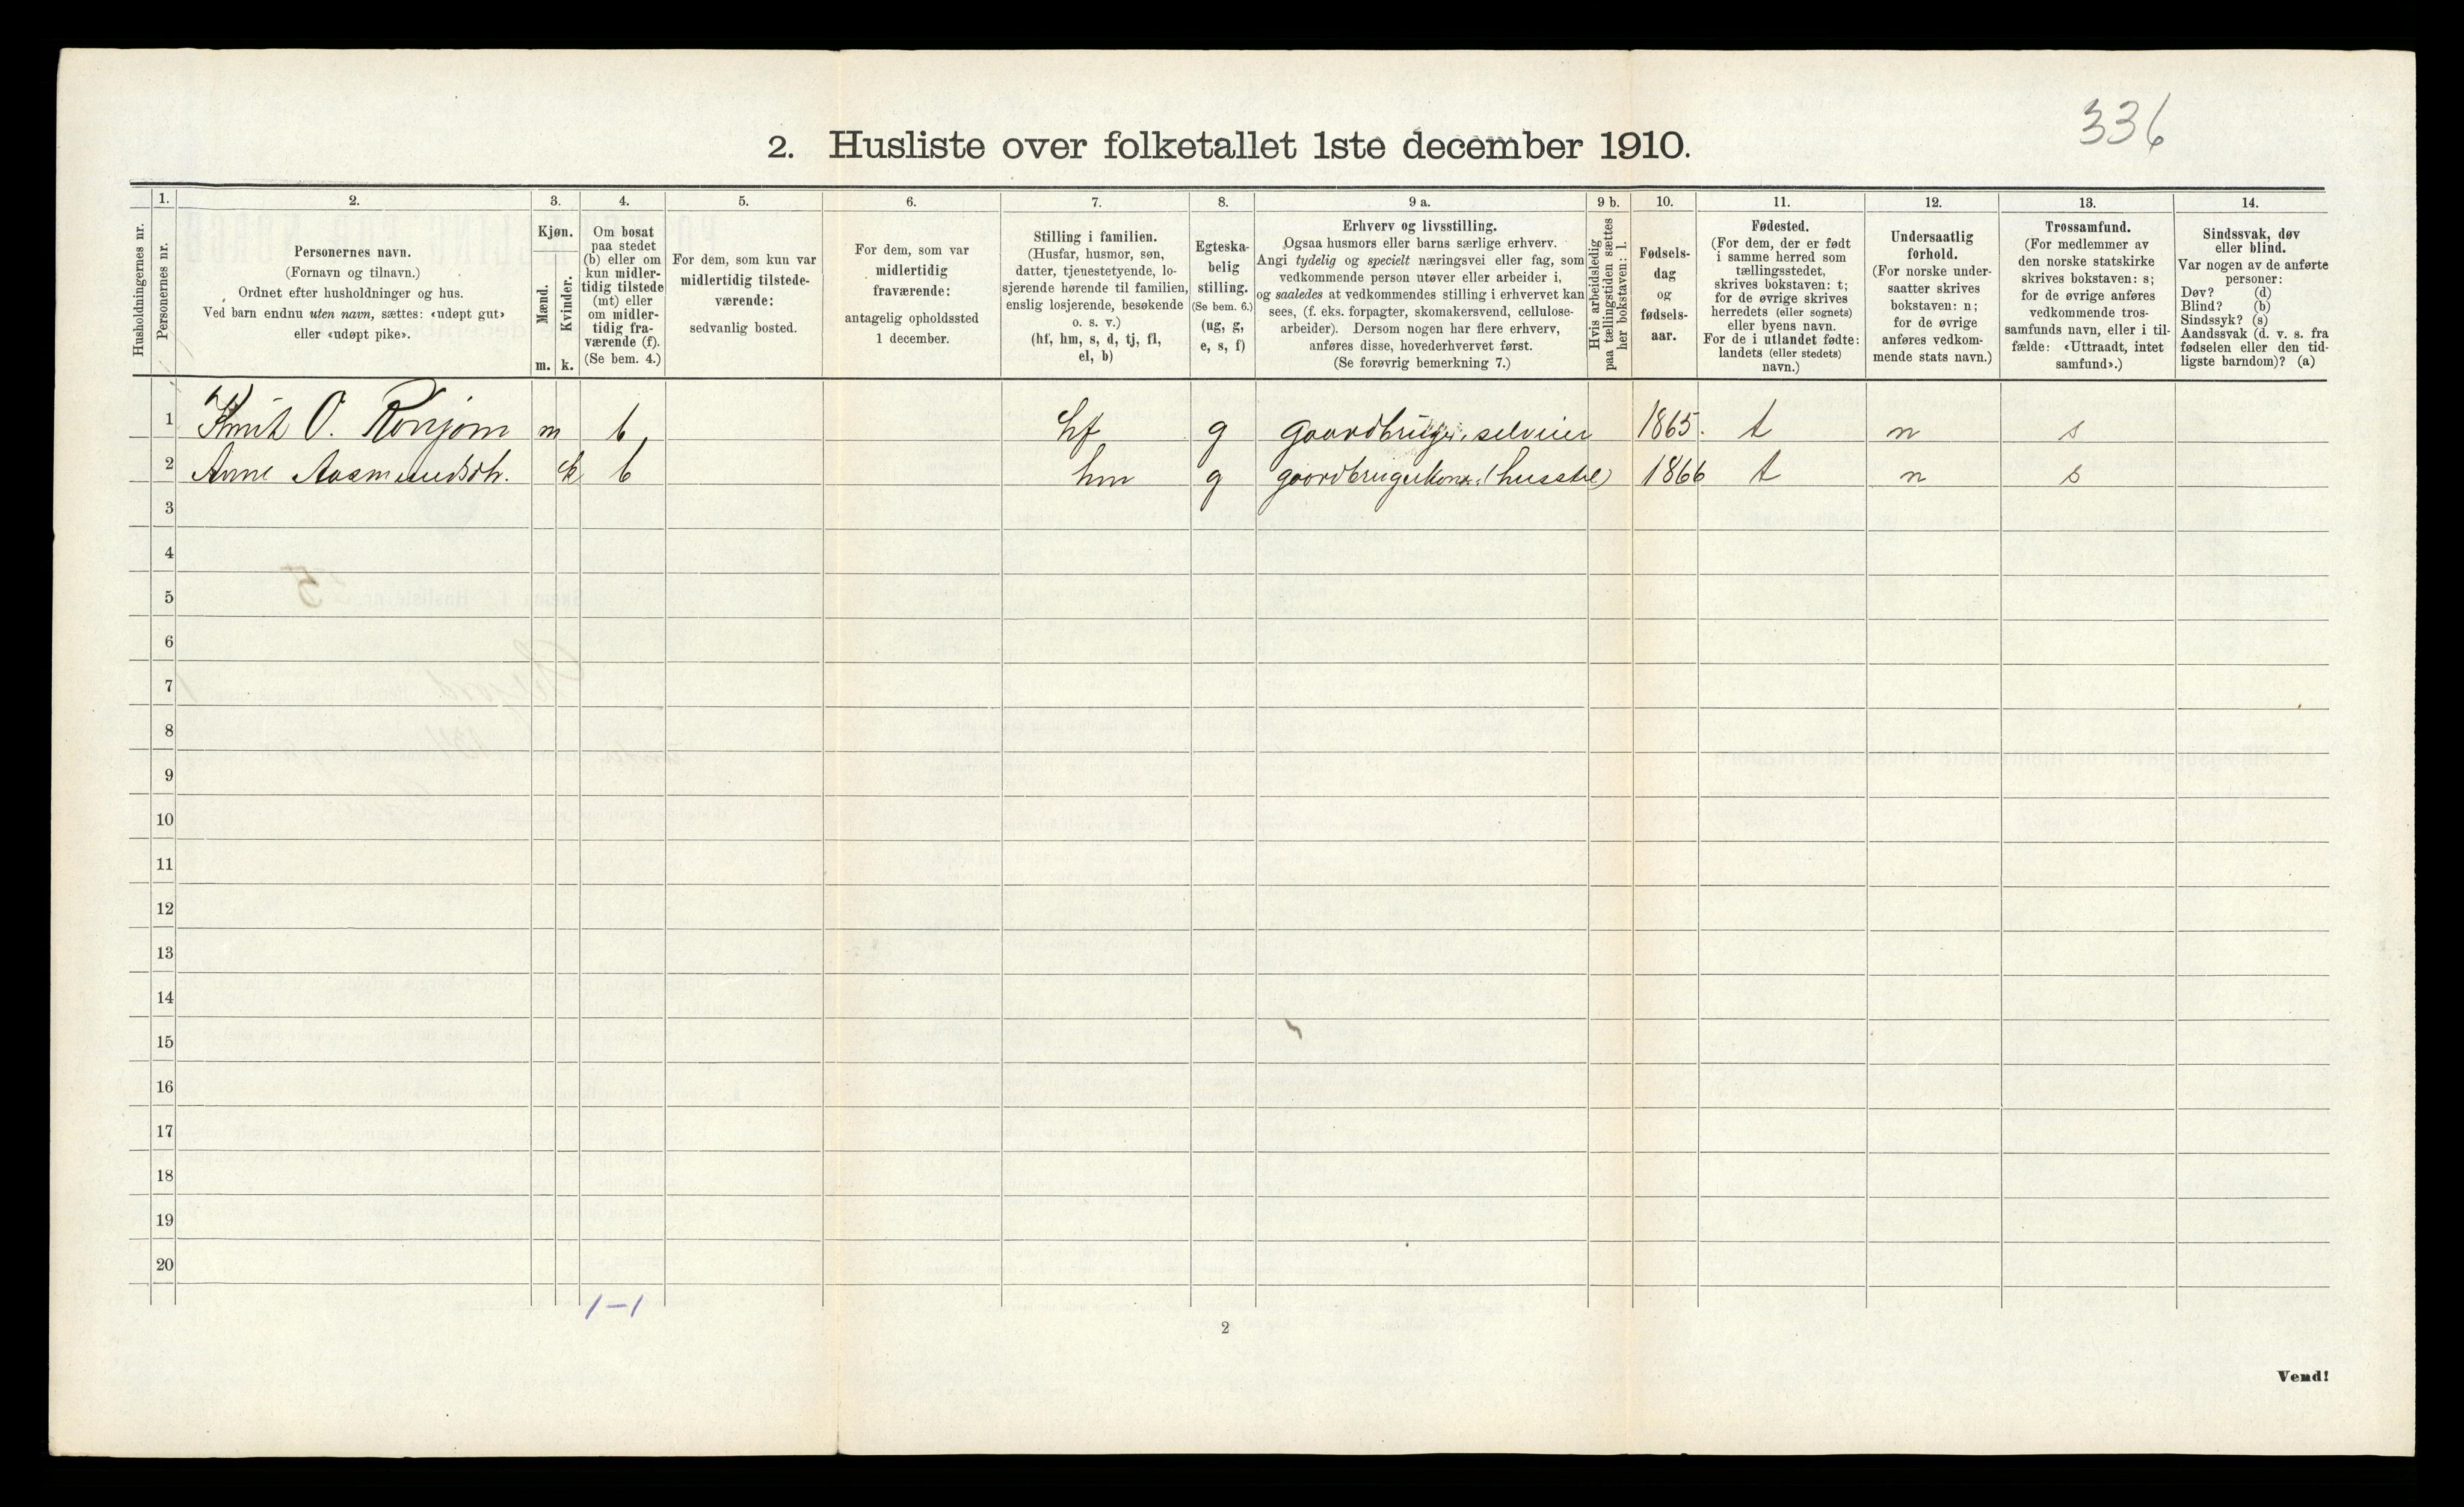 336
2. Husliste over folketallet 1ste december 1910.
1. 2. 3. 4. 5. 6. 7. 8. 9 a. 9 b. 10. 11. 12. 13. 14.
Husholdningernes nr.
Personernes nr.
Personernes navn.
(Fornavn og tilnavn.)
Ordnet efter husholdninger og hus.
Ved barn endnu uten navn, sættes: «udøpt gut»
eller «udøpt pike».
Kjøn.
Mænd.
Kvinder.
m. k.
Om bosat
paa stedet
(b) eller om
kun midler-
tidig tilstede
(mt) eller
om midler-
tidig fra-
værende (f).
(Se bem. 4.)
For dem, som kun var
midlertidig tilstede-
værende:
sedvanlig bosted.
For dem, som var
midlertidig
fraværende:
antagelig opholdssted
1 december.
Stilling i familien.
(Husfar, husmor, søn,
datter, tjenestetyende, lo-
sjerende hørende til familien,
enslig losjerende, besøkende
o. s. v.)
(hf, hm, s, d, tj, fl,
el, b)
Egteska-
belig
stilling.
(Se bem. 6.)
(ug, g,
e, s, f)
Erhverv og livsstilling.
Ogsaa husmors eller barns særlige erhverv.
Angi tydelig og specielt næringsvei eller fag, som
vedkommende person utøver eller arbeider i,
og saaledes at vedkommendes stilling i erhvervet kan
sees, (f. eks. forpagter, skomakersvend, cellulose-
arbeider). Dersom nogen har flere erhverv,
anføres disse, hovederhvervet først.
(Se forøvrig bemerkning 7.)
Hvis arbeidsledig
paa tællingstiden sættes
her bokstaven: l.
Fødsels-
dag
og
fødsels-
aar.
Fødested.
(For dem, der er født
i samme herred som
tællingsstedet,
skrives bokstaven: t;
for de øvrige skrives
herredets (eller sognets)
eller byens navn.
For de i utlandet fødte:
landets (eller stedets)
navn.)
Undersaatlig
forhold.
(For norske under-
saatter skrives
bokstaven: n;
for de øvrige
anføres vedkom-
mende stats navn.)
Trossamfund.
(For medlemmer av
den norske statskirke
skrives bokstaven: s;
for de øvrige anføres
vedkommende tros-
samfunds navn, eller i til-
fælde: «Uttraadt, intet
samfund».)
Sindssvak, døv
eller blind.
Var nogen av de anførte
personer:
Døv? (d)
Blind? (b)
Sindssyk? (s)
Aandssvak (d. v. s. fra
fødselen eller den tid-
ligste barndom)? (a)
1 Knut O. Ronjom m b hf g gaardbruger, selveier 1865. t n s
2 Anne Aasmundsdt. k b hm g gaardbrugerkone (husstel) 1866 t n s
3
4
5
6
7
8
9
10
11
12
13
14
15
16
17
18
19
20
1-1
2
Vend!